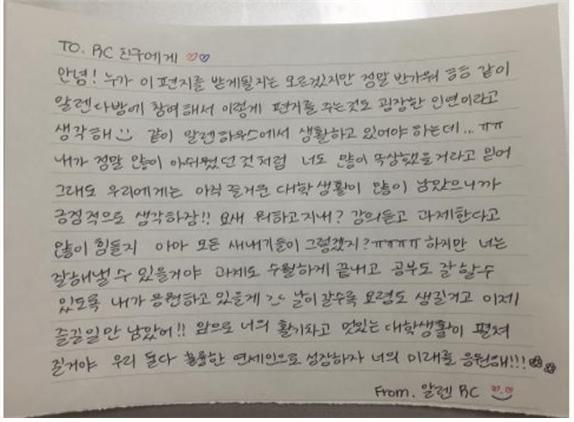 TO. RC 친구에게 ♡♡
안녕! 누가 이 편지를 받게될지는 모르겠지만 정말 반가워 ㅎㅎ 같이
알렌다방에 참여해서 이렇게 편지를 주는것도 굉장한 인연이라고
생각해 같이 알렌하우스에서 생활하고 있어야 하는데... ㅠㅠ
내가 정말 많이 아쉬웠던것처럼 너도 많이 속상했을거라고 믿어
그래도 우리에게는 아직 즐거운 대학생활이 많이 남았으니까
긍정적으로 생각하장!! 요새 뭐하고지내? 강의듣고 과제한다고
많이 힘들지 아마 모든 새내기들이 그렇겠지? ㅠㅠㅠㅠ 하지만 너는
잘해낼 수 있을거야 과제도 수월하게 끝내고 공부도 잘 할 수
있도록 내가 응원하고 있을게 날이 갈수록 요령도 생길거고 이제
즐길일만 남았어!! 앞으로 너의 활기차고 멋있는 대학생활이 펼쳐
질거야 우리 둘다 훌륭한 연세인으로 성장하자 너의 미래를 응원해!!!
From. 알렌 RC